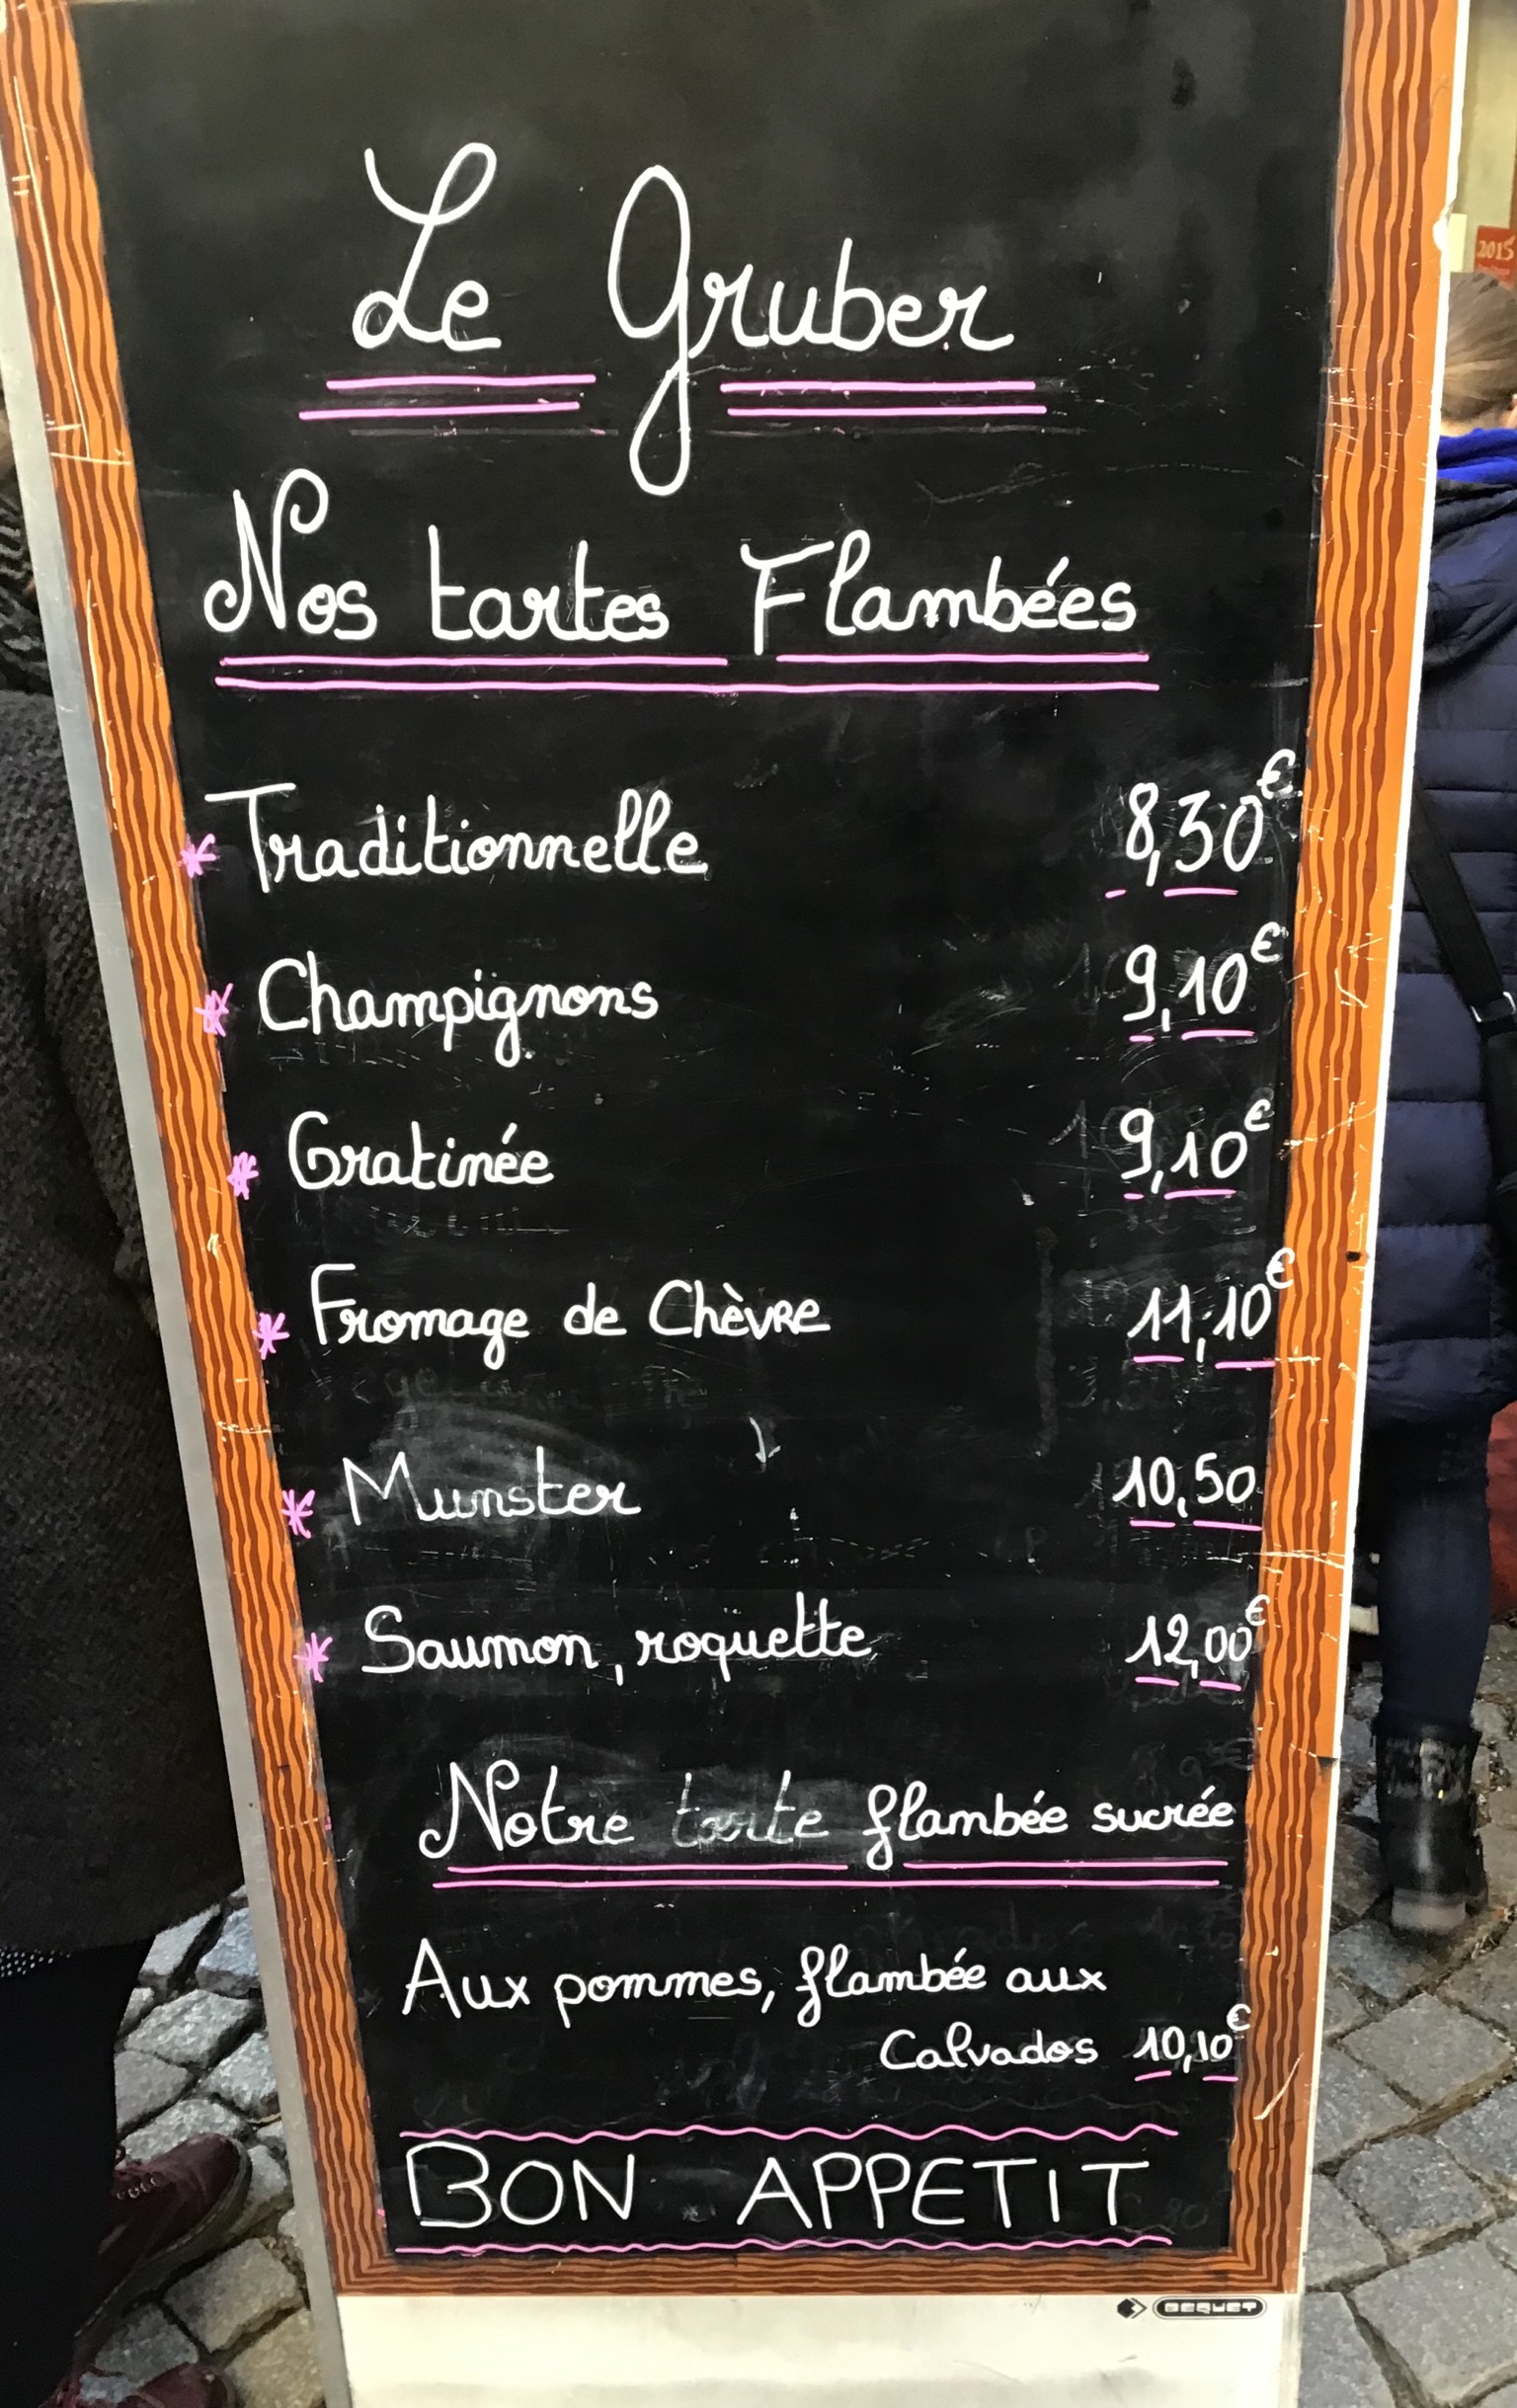 Le Gruber
Nos tartes Flambées
* Traditionnelle 8,30€
* Champignons 9,10€
* Gratinée 9,10€
* Fromage de Chèvre 11,10€
* Munster 10,50
* Saumon, roquette 12,00€
Notre tarte flambée sucrée
Aux pommes, flambée aux
Calvados 10,10€
BON APPETIT
BEQUET
2015